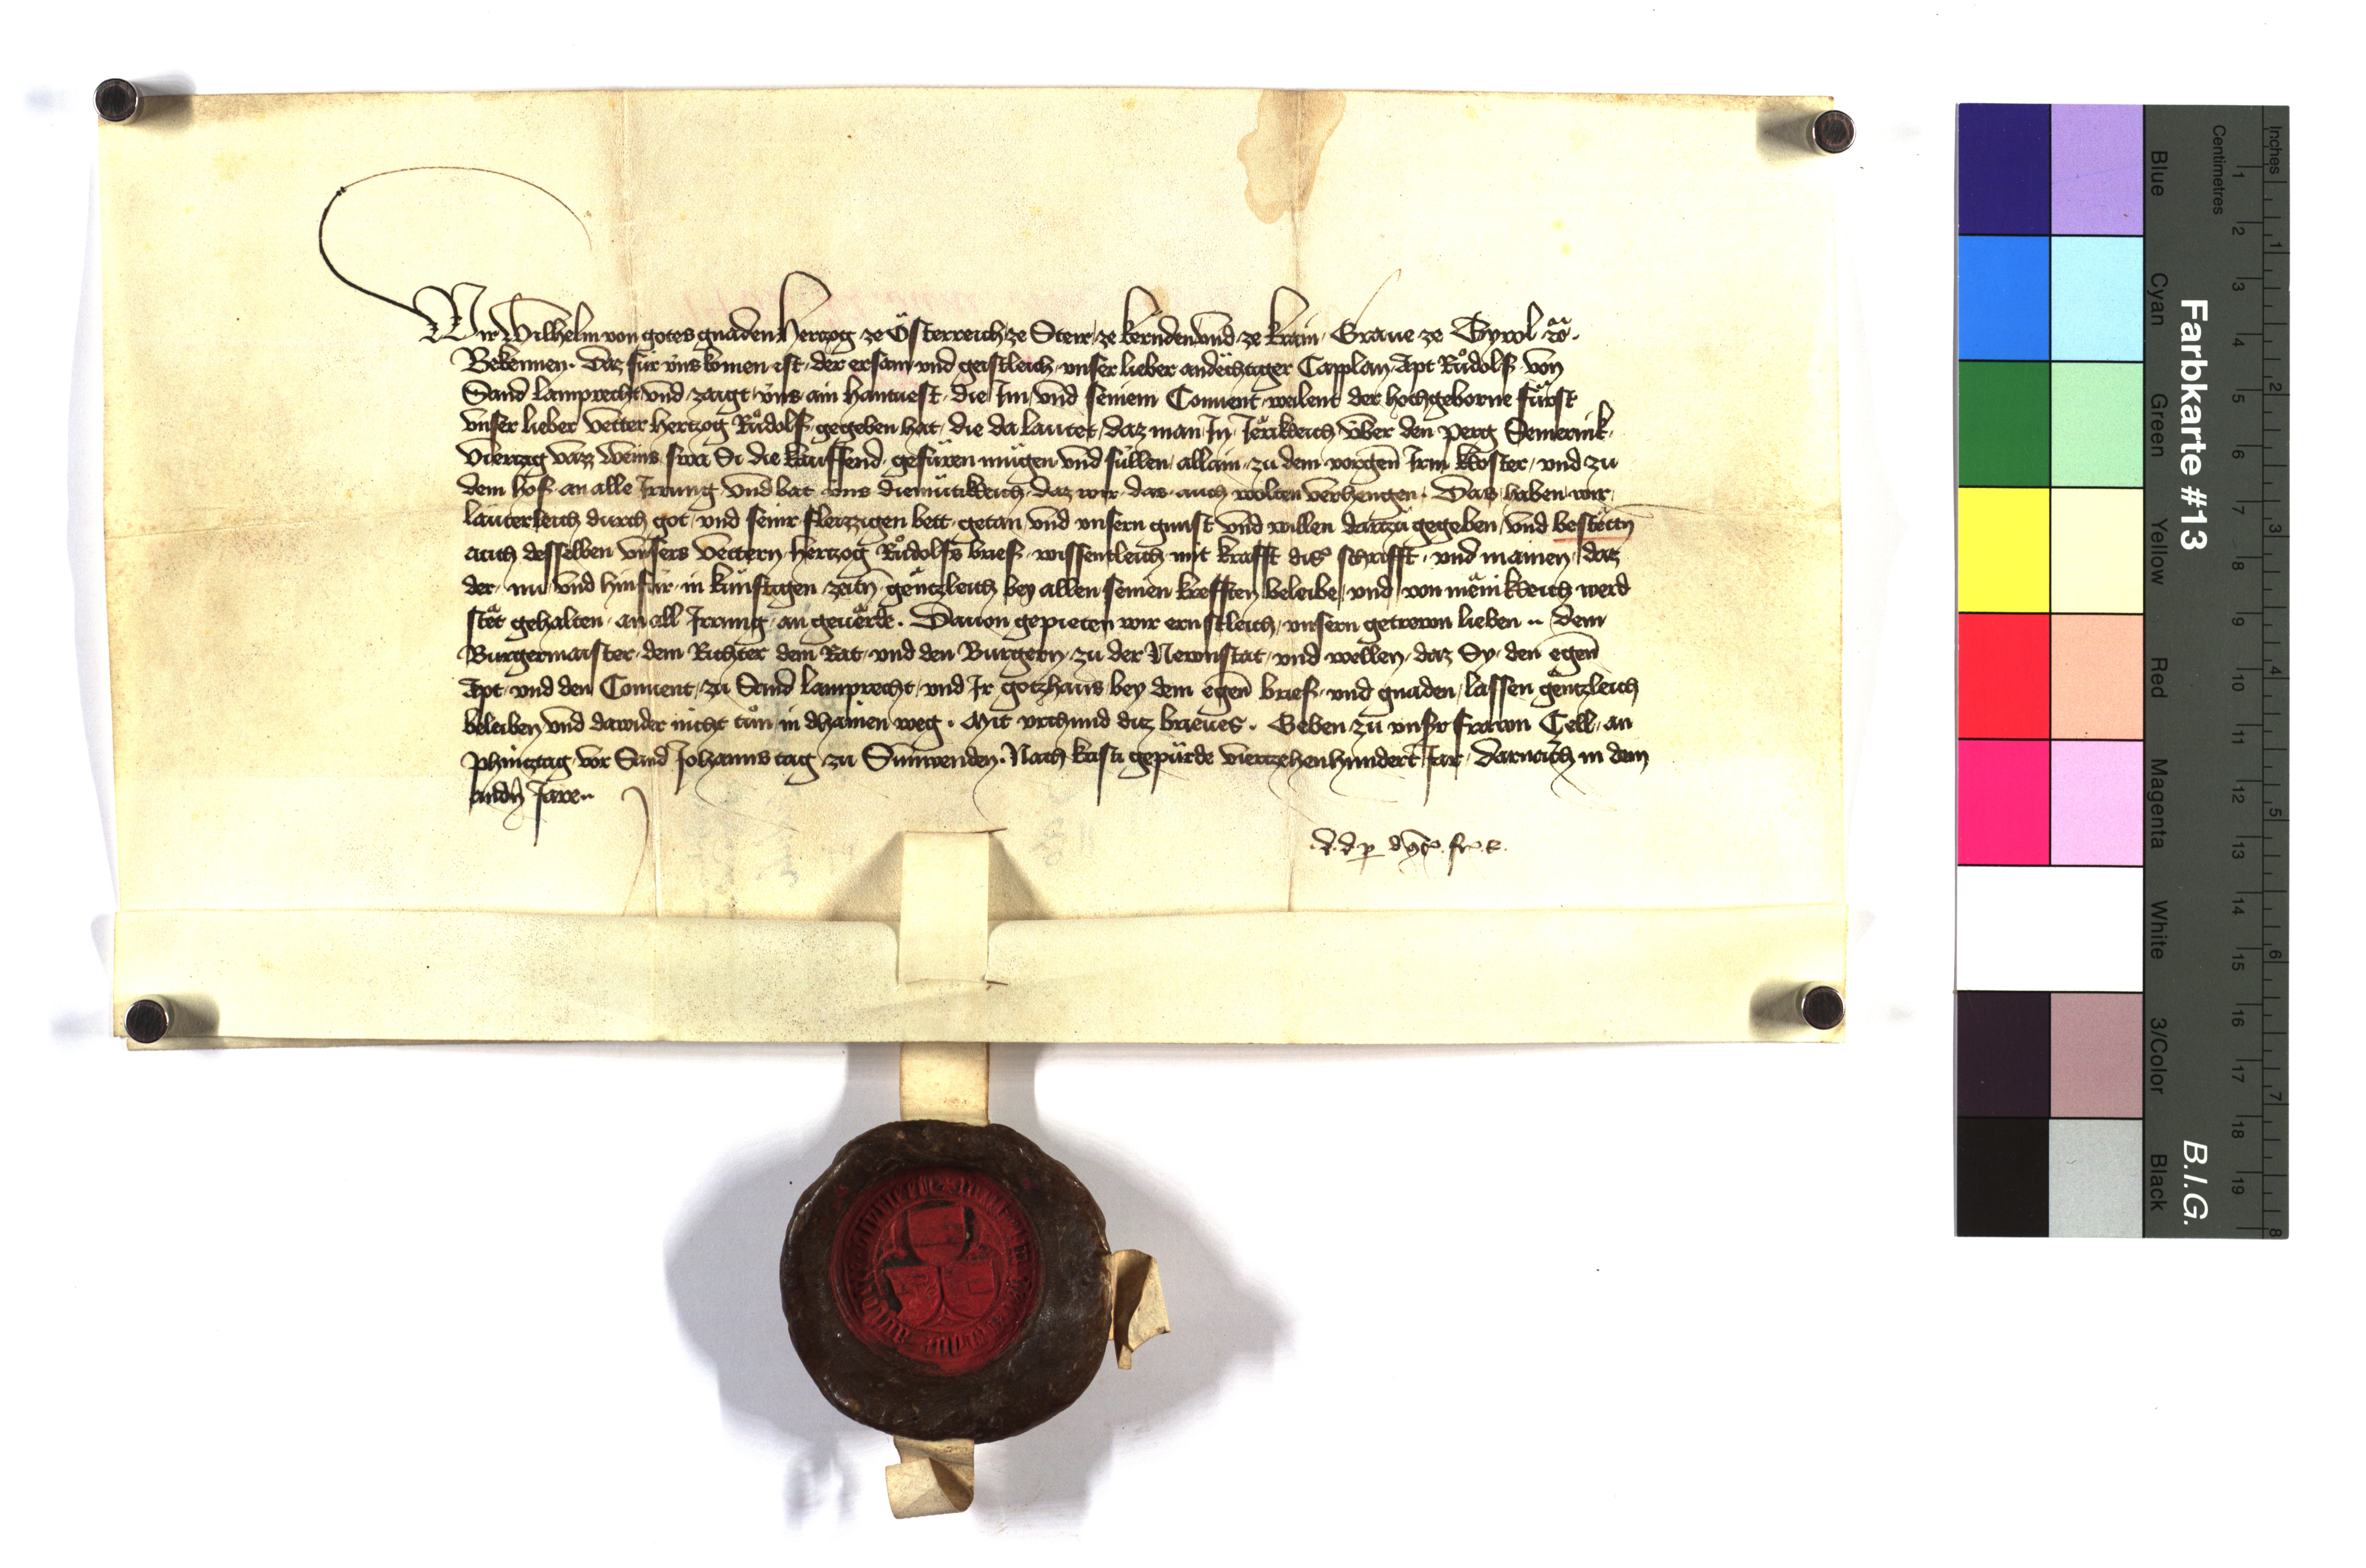 Wir Wilhelm von gotes gnaden Hertzog ze Österreich ze Steir ze kernden vnd ze krain Graue ze Tyrol etc.
Bekennen. Daz für vns komen ist der ersam vnd geistleich vnser lieber andechtiger Capplan Apt Rudolf von
Sand Lamprecht vnd zaigt vns ain hantuest die Im vnd seinem Conuent weilent der hochgeborne fürst
vnser lieber vetter Hertzog Rudolf gegeben hat, die da lautet, daz man In Jerikleich vber den perg Semernik
viertzig vazz weins swa Si die kauffend gefüren mügen vnd süllen allain zu dem vorgen Irm kloster vnd zu
dem hof an alle Irrung vnd bat vns diemütikleich daz wir das auch wolten verhengen. Das haben wir
lauterleich durch got vnd seinr fleizzigen bett getan vnd vnsern gunst vnd willen dartzu gegeben vnd bestettn
auch desselben vnsers vettern Hertzog Rudolfs brief wissentleich mit krafft dis schrifft vnd mainen daz
der nu vnd hinfür in künftigen zeitn gentzleich bey allen seinen krefften beleibe vnd von menikleich werd
stet gehalten an all Irrung an geuerde. Dauon gepieten wir ernstleich vnsern getrewn lieben .. dem
Burgermaister dem Richter dem Rat vnd den Burgern zu der Newnstat vnd wellen daz Sy den egen
Apt vnd den Conuent zu Sand Lamprecht vnd Ir gotzhaus bey dem egen brief vnd gnaden lassen gentzleich
beleiben vnd dawider nicht tun in dhainen weg. Mit vrchund diz brieues. Geben zu vnsr frawn Cell an
Phintztag vor Sand Johanns tag zu Sunwenden. Nach kristi gepürde viertzehenhundert Jar darnach in dem
andn Jare..
d. d. p
Farbkarte #13
B.I.G.
Inches
Centimetres
1 2 3 4 5 6 7 8 9 10 11 12 13 14 15 16 17 18 19
1 2 3 4 5 6 7 8
Blue
Cyan
Green
Yellow
Red
Magenta
White
3/Color
Black